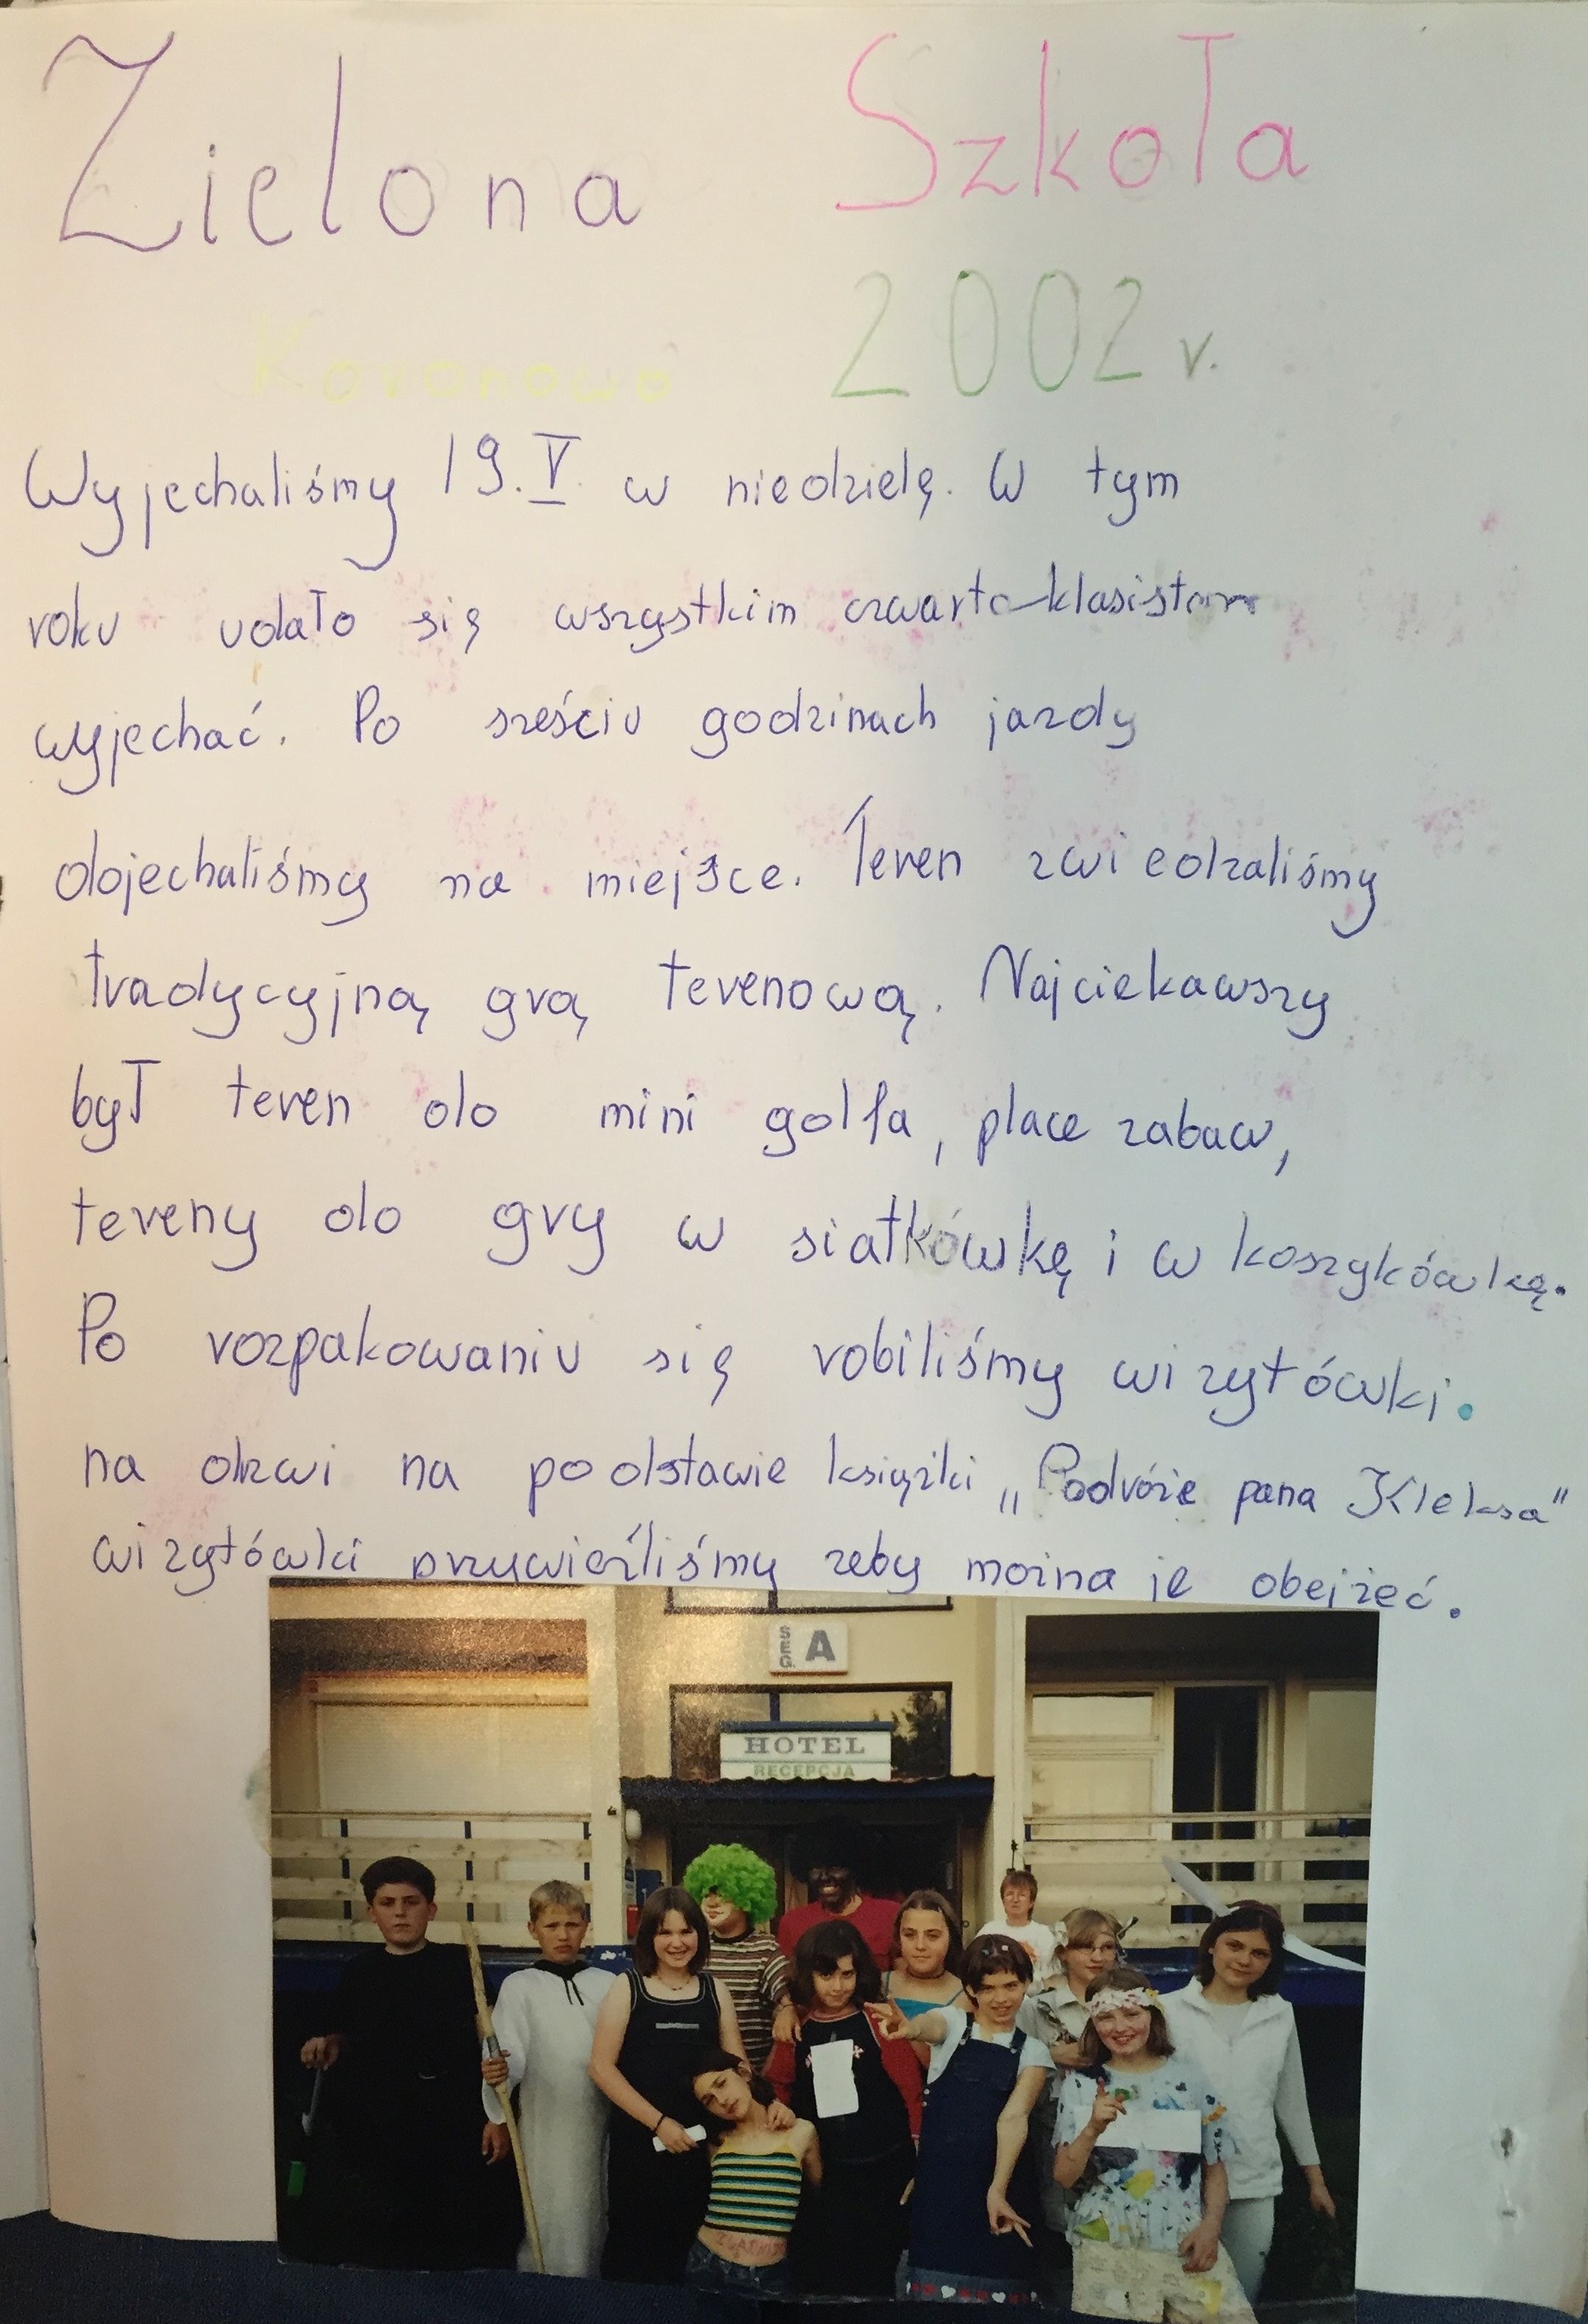 Zielona Szkoła
Koronowo 2002 r.
Wyjechaliśmy 19.V. w niedzielę. W tym
roku udało się wszystkim czwarto-klasistom
wyjechać. Po sześciu godzinach jazdy
dojechaliśmy na miejsce. Teren zwiedzaliśmy
tradycyjną grą terenową. Najciekawszy
był teren do mini golfa, place zabaw,
tereny do gry w siatkówkę i w koszykówkę.
Po rozpakowaniu się robiliśmy wizytówki.
na drzwi na podstawie książki „Podróże pana Kleksa”
wizytówki przywieźliśmy żeby można je obejżeć.
SEG. A
HOTEL
RECEPCJA